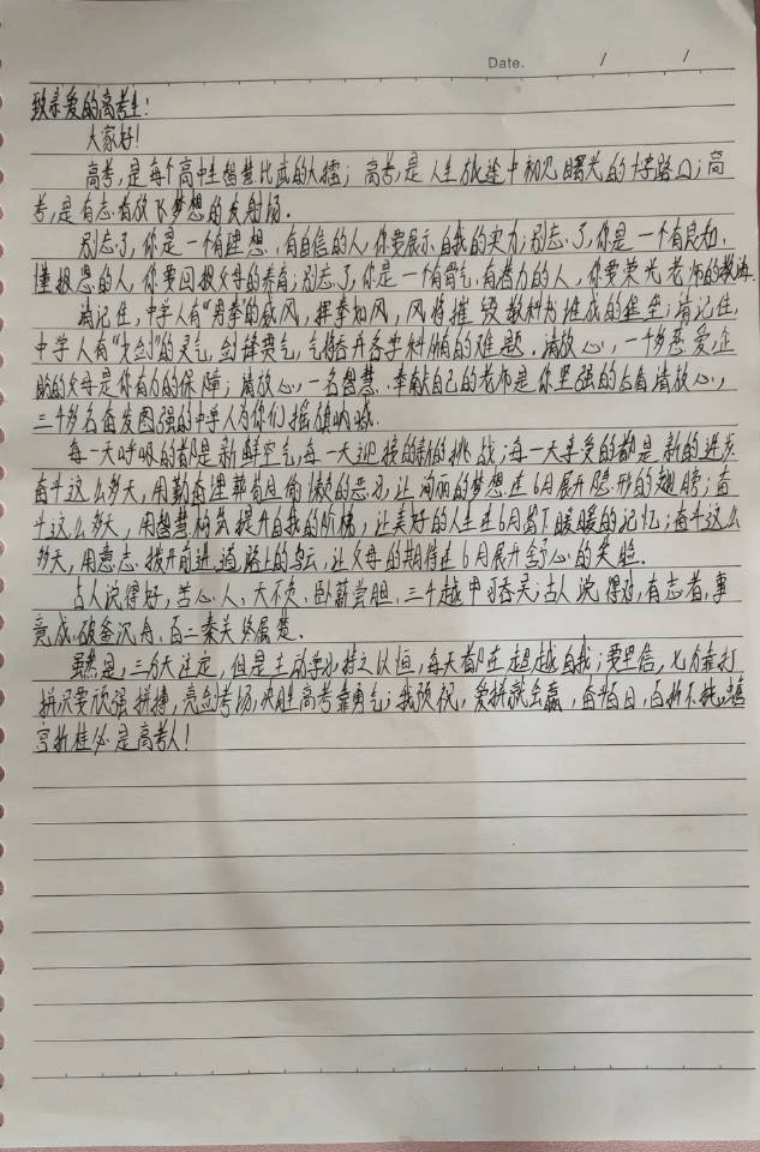 Date. / /
致亲爱的高考生!
大家好!
高考,是每个高中生智慧比武的大擂;高考,是人生旅途中初见曙光的十字路口;高
考,是有志者放飞梦想的发射场.
别忘了,你是一个有理想、有自信的人,你要展示自我的实力;别忘了,你是一个有良知、
懂报恩的人,你要回报父母的养育;别忘了,你是一个有骨气,有潜力的人,你要荣光老师的教诲.
请记住,中学人有“男拳”的威风,挥拳如风,风将摧毁教科书堆成的堡垒;请记住,
中学人有“尖剑”的灵气,剑锋贯气,气将吞并各学科所有的难题.请放心,一千多慈爱,企
盼的父母是你有力的保障;请放心,一名智慧、奉献自己的老师是你坚强的后盾请放心,
三千多名奋发图强的中学人为你们摇旗呐喊.
每一天呼吸的都是新鲜空气,每一天迎接的新的挑战;每一天享受的都是新的进步.
奋斗这么多天,用勤奋埋葬苟且偷懒的恶习,让绚丽的梦想在6月展开隐形的翅膀;奋
斗这么多天,用智慧构筑提升自我的阶梯,让美好的人生在6月留下暖暖的记忆;奋斗这么
多天,用意志拨开前进道路上的乌云,让父母的期待在6月展开舒心的笑脸.
古人说得好,苦心人、天不负、卧薪尝胆、三千越甲可吞吴;古人说得对,有志者,事
竟成,破釜沉舟、百二秦关终属楚.
虽然是,三分天注定,但是主动学习,持之以恒,每天都在超越自我;要坚信,七分靠打
拼只要顽强拼搏,亮剑考场,决胜高考靠勇气;我预祝,爱拼就会赢,奋斗百日,百折不挠,蟾
宫折桂必是高考人!